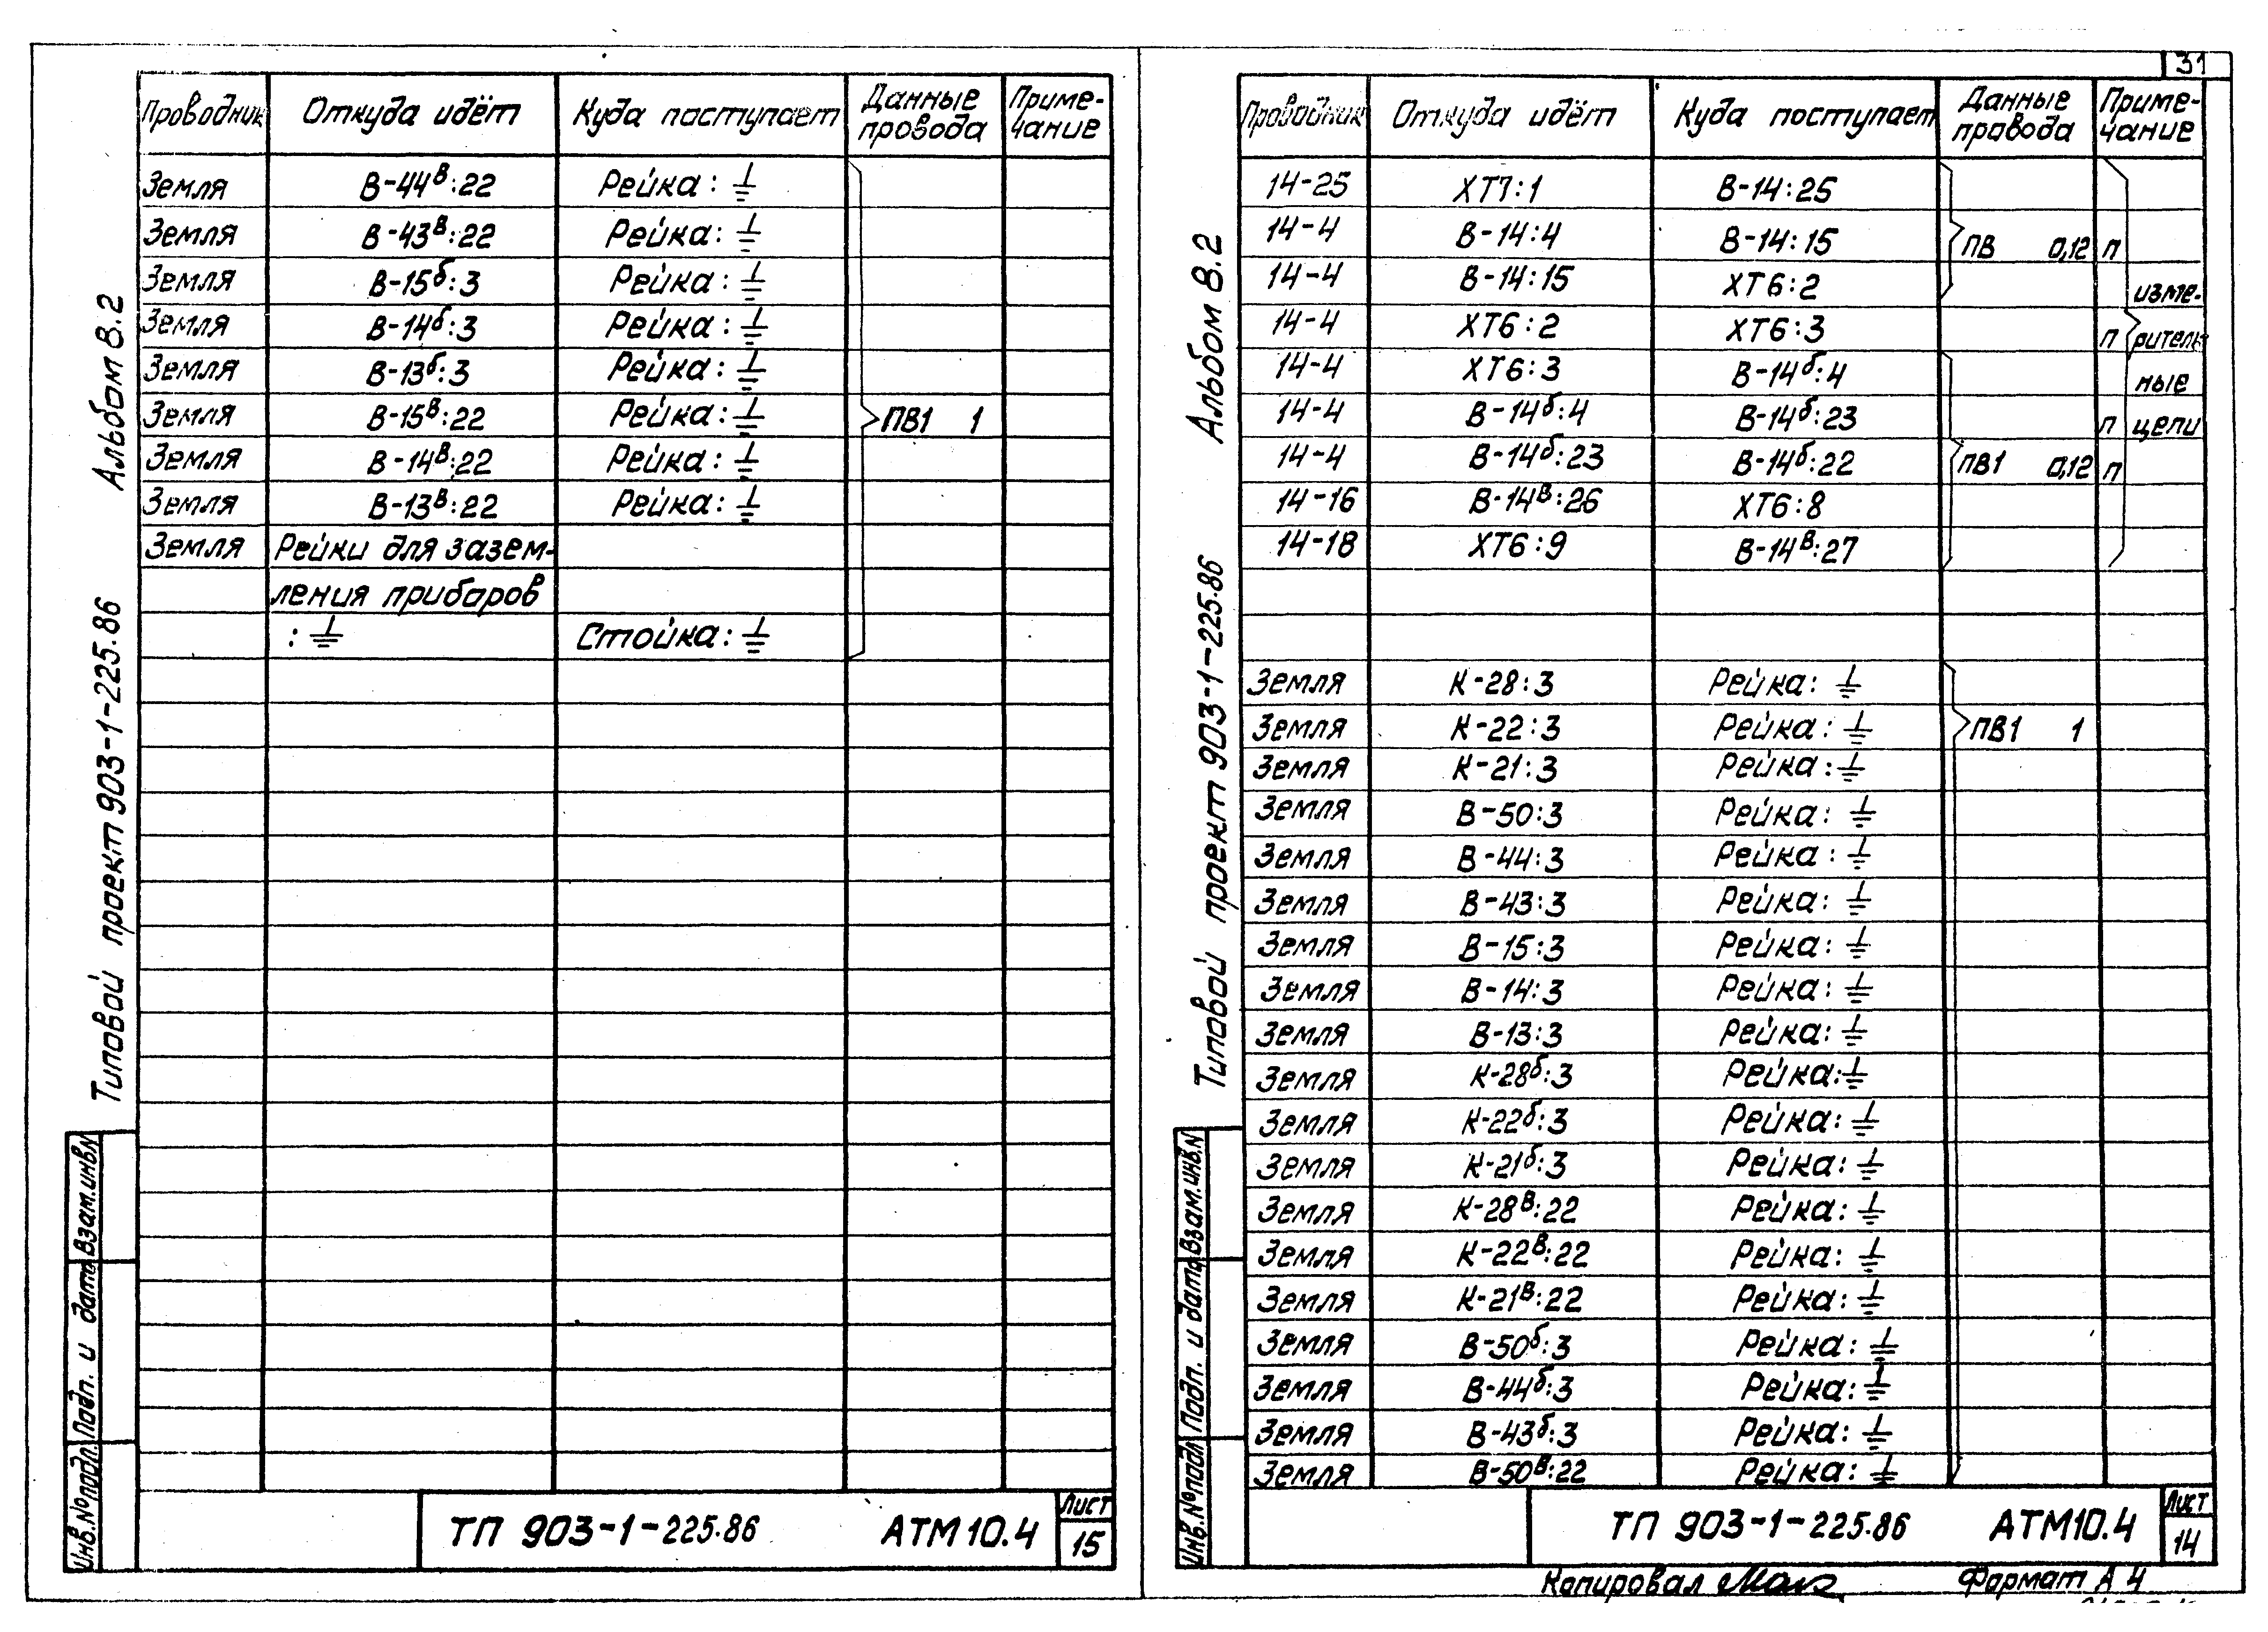 31
Альбом 8.2
Типовой проект 903-1-225.86
Проводник Откуда идёт Куда поступает Данные провода Приме-чание
Земля В-44В:22 Рейка: ⏚
Земля В-43В:22 Рейка: ⏚
Земля В-15б:3 Рейка: ⏚
Земля В-14б:3 Рейка: ⏚
Земля В-13б:3 Рейка: ⏚
Земля В-15В:22 Рейка: ⏚ ПВ1 1
Земля В-14В:22 Рейка: ⏚
Земля В-13В:22 Рейка: ⏚
Земля Рейки для зазем-
ления приборов
: ⏚ Стойка: ⏚
Взам.инв.N
Подп. и дата
Инв.№подл.
ТП 903-1-225.86 АТМ10.4
Лист
15
Альбом 8.2
Типовой проект 903-1-225.86
Проводник Откуда идёт Куда поступает Данные провода Приме-чание
14-25 ХТ7:1 В-14:25
14-4 В-14:4 В-14:15 ПВ 0,12 п
14-4 В-14:15 ХТ6:2 изме-
14-4 ХТ6:2 ХТ6:3 п ритель
14-4 ХТ6:3 В-14б:4 ные
14-4 В-14б:4 В-14б:23 п цепи
14-4 В-14б:23 В-14б:22 ПВ1 0,12 п
14-16 В-14В:26 ХТ6:8
14-18 ХТ6:9 В-14В:27
Земля К-28:3 Рейка: ⏚
Земля К-22:3 Рейка: ⏚ ПВ1 1
Земля К-21:3 Рейка: ⏚
Земля В-50:3 Рейка: ⏚
Земля В-44:3 Рейка: ⏚
Земля В-43:3 Рейка: ⏚
Земля В-15:3 Рейка: ⏚
Земля В-14:3 Рейка: ⏚
Земля В-13:3 Рейка: ⏚
Земля К-28б:3 Рейка: ⏚
Земля К-22б:3 Рейка: ⏚
Земля К-21б:3 Рейка: ⏚
Земля К-28В:22 Рейка: ⏚
Земля К-22В:22 Рейка: ⏚
Земля К-21В:22 Рейка: ⏚
Земля В-50б:3 Рейка: ⏚
Земля В-44б:3 Рейка: ⏚
Земля В-43б:3 Рейка: ⏚
Земля В-50В:22 Рейка: ⏚
Взам.инв.N
Подп. и дата
Инв.№подл
ТП 903-1-225.86 АТМ10.4
Лист
14
Копировал Формат А4